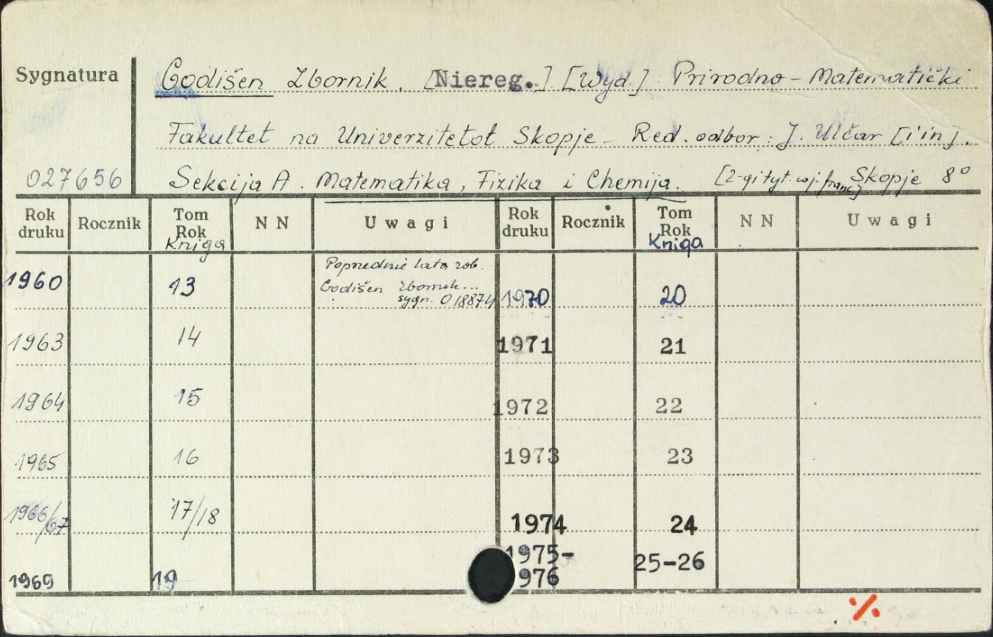 Sygnatura
Godišen Zbornik. [Niereg.] [Wyd] Prirodno-Matematički
Fakultet na Univerzitetot Skopje - Red. odbor: J. Ulčar [i in].
027656 Sekcija A. Matematika, Fizika i Chemija. [2-gi tyt. w j. franc.] Skopje 8°
Rok druku Rocznik Tom Rok Kniga NN Uwagi Rok druku Rocznik Tom Rok Kniga NN Uwagi
1960 13 Poprzednie lata zob.
Godišen Zbornik...
sygn. 018874 1970 20
1963 14 1971 21
1964 15 1972 22
1965 16 1973 23
1966/67 17/18 1974 24
1969 19 1975-
976 25-26
%